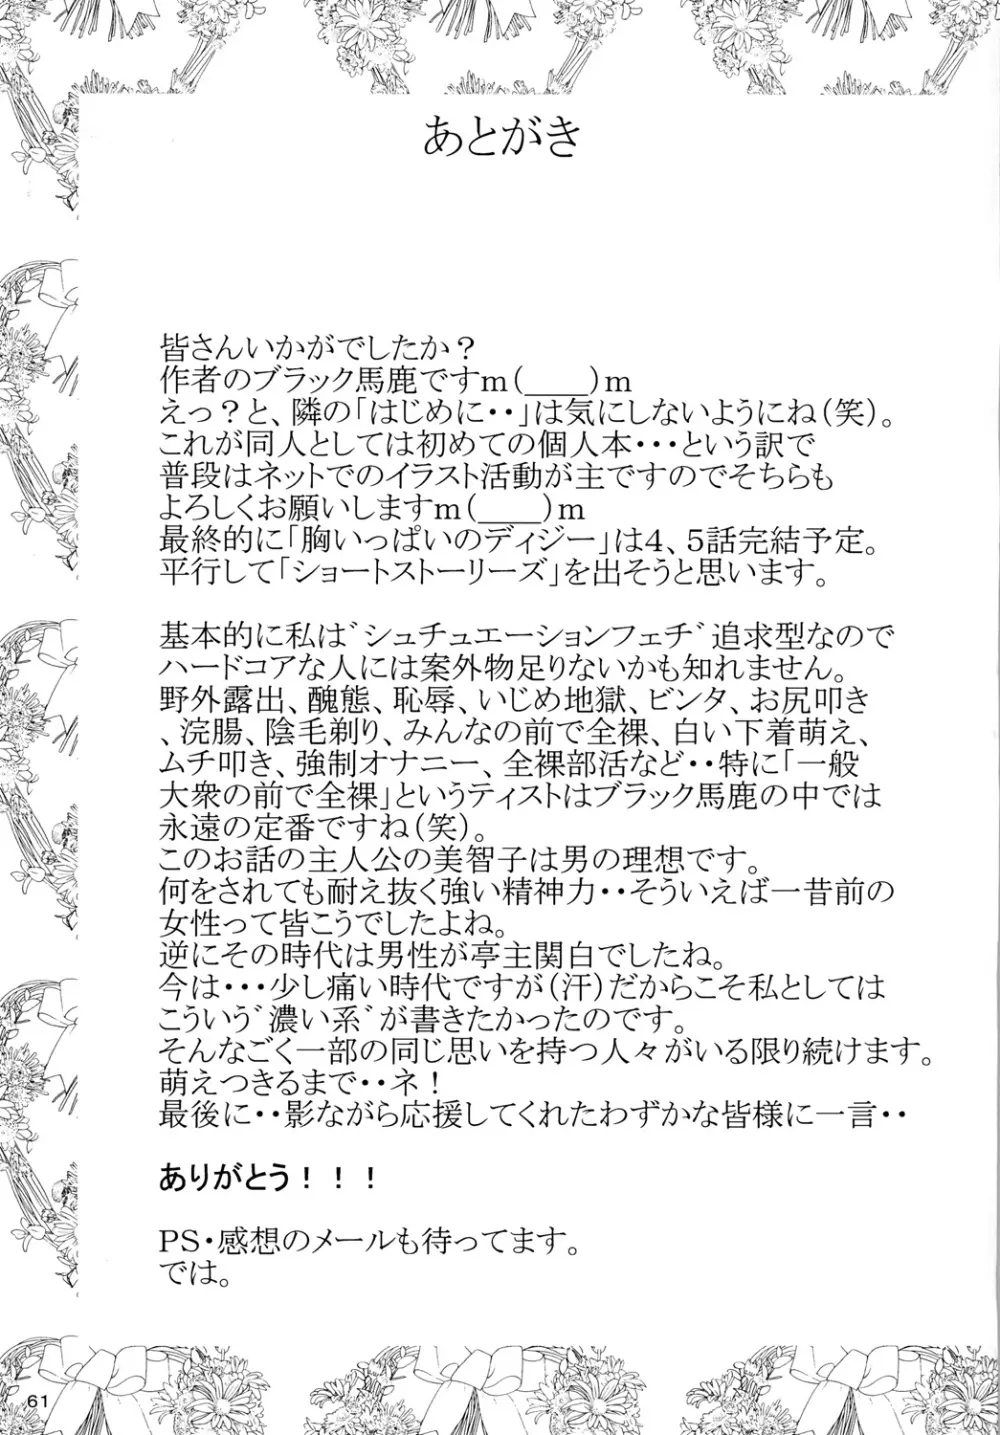 あとがき
皆さんいかがでしたか？
作者のブラック馬鹿ですｍ（＿＿）ｍ
えっ？と、隣の「はじめに・・」は気にしないようにね（笑）。
これが同人としては初めての個人本・・・という訳で
普段はネットでのイラスト活動が主ですのでそちらも
よろしくお願いしますｍ（＿＿）ｍ
最終的に「胸いっぱいのディジー」は４、５話完結予定。
平行して「ショートストーリーズ」を出そうと思います。
基本的に私は゛シュチュエーションフェチ゛追求型なので
ハードコアな人には案外物足りないかも知れません。
野外露出、醜態、恥辱、いじめ地獄、ビンタ、お尻叩き
、浣腸、陰毛剃り、みんなの前で全裸、白い下着萌え、
ムチ叩き、強制オナニー、全裸部活など・・特に「一般
大衆の前で全裸」というティストはブラック馬鹿の中では
永遠の定番ですね（笑）。
このお話の主人公の美智子は男の理想です。
何をされても耐え抜く強い精神力・・そういえば一昔前の
女性って皆こうでしたよね。
逆にその時代は男性が亭主関白でしたね。
今は・・・少し痛い時代ですが（汗）だからこそ私としては
こういう゛濃い系゛が書きたかったのです。
そんなごく一部の同じ思いを持つ人々がいる限り続けます。
萌えつきるまで・・ネ！
最後に・・影ながら応援してくれたわずかな皆様に一言・・
ありがとう！！！
ＰＳ・感想のメールも待ってます。
では。
61